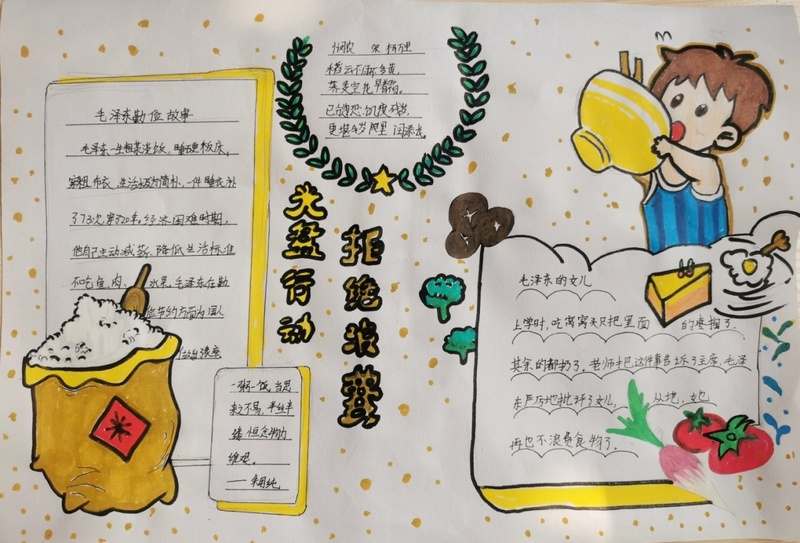 毛泽东勤俭故事
毛泽东一生粗茶淡饭，睡硬板床，
穿粗布衣，生活极为简朴，一件睡衣补
了73次，穿20年，经济困难时期，
他自己主动减薪、降低生活标准
不吃鱼、肉、水果，毛泽东在勤
俭节约方面为国人
悯农 宋 杨万里
稻云不雨不多黄，
荞麦空花早着霜，
已分忍饥度残岁，
更堪岁里闰添长。
光盘行动
拒绝浪费
一粥一饭，当思
来之不易，半丝半
缕，恒念物力
维艰。
——朱用纯
毛泽东的女儿
上学时，吃窝窝头只把里面的枣掏了，
其余的都扔了。老师把这件事告诉了主席，毛泽
东严厉地批评了女儿，从此，她
再也不浪费食物了。